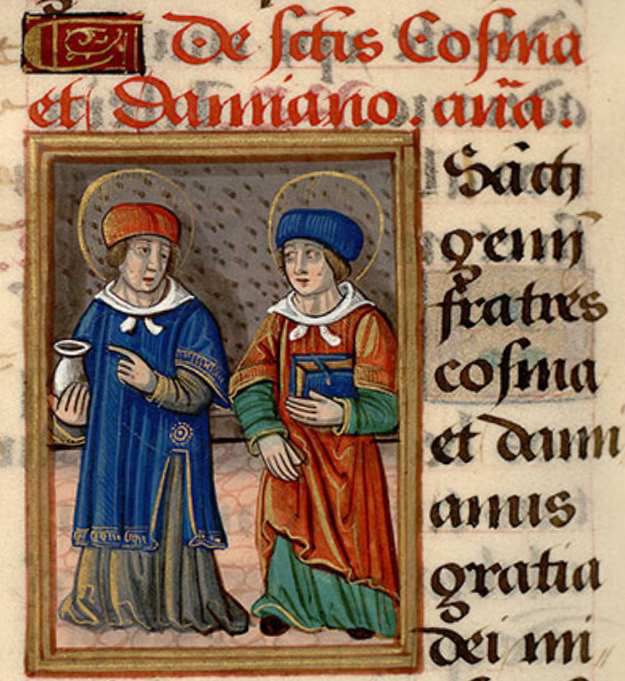 De sctis Cosma
et Damiano. aña.
Sāct
geriñ
fratres
cosma
et dam
anus
gratia
dei mi